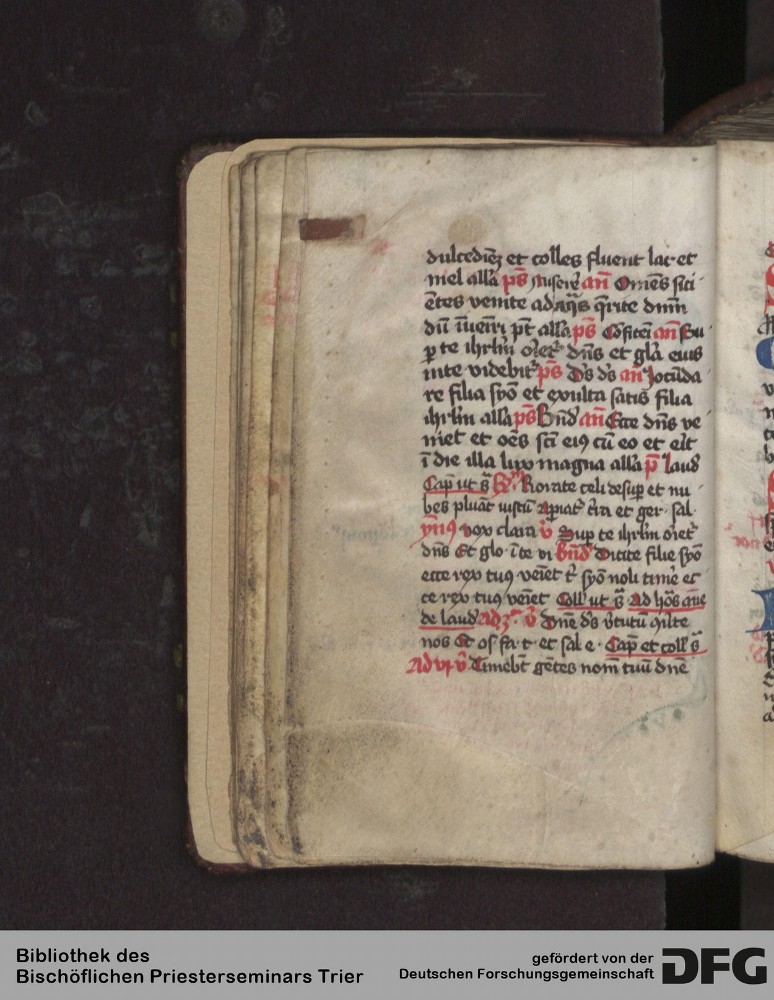 dulcediēꝫ et colles fluent lac et
mel alla p̄s Miserē an̄ Omēs siti
ētes venite ad aq̄s q̄rite dnm
dū īueiri pt̄ alla p̄s Cōfitem̄ an̄ Su
ꝑ te ihrlm oriet᷑ dn̄s et glā eius
inte videbit᷑ p̄s Ds ds an̄ Jocūda
re filia syō et exulta satis filia
ihrlm alla p̄s Bn̄d an̄ Ecce dn̄s ve
niet et oēs sc̄i eiꝯ cū eo et eīt
ī die illa lux magna alla p̄ laud
Cap̄ ut s᷑ Rorate celi desuꝑ et nu
bes pluāt iustū aꝑiat᷑ t̄ra et ger sal
ymꝯ vox clara v̄ Sup te ihrlm oriet᷑
dn̄s Et glo ī te vi bn̄d Dicite filie syō
ecce rex tuꝯ veīet t᷑ syō noli timē ec
ce rex tuꝯ veīet Coll ut s᷑ Ad hōs an̄e
de laud ad ꝫ v̄ Dne ds v̄tutū ꝯūte
nos Et os fa t et sal e Cap̄ et coll s᷑
Ad vi v̄ Timebt̄ gētes nom̄ tuū dnē
Bibliothek des
Bischöflichen Priesterseminars Trier
gefördert von der
Deutschen Forschungsgemeinschaft
DFG